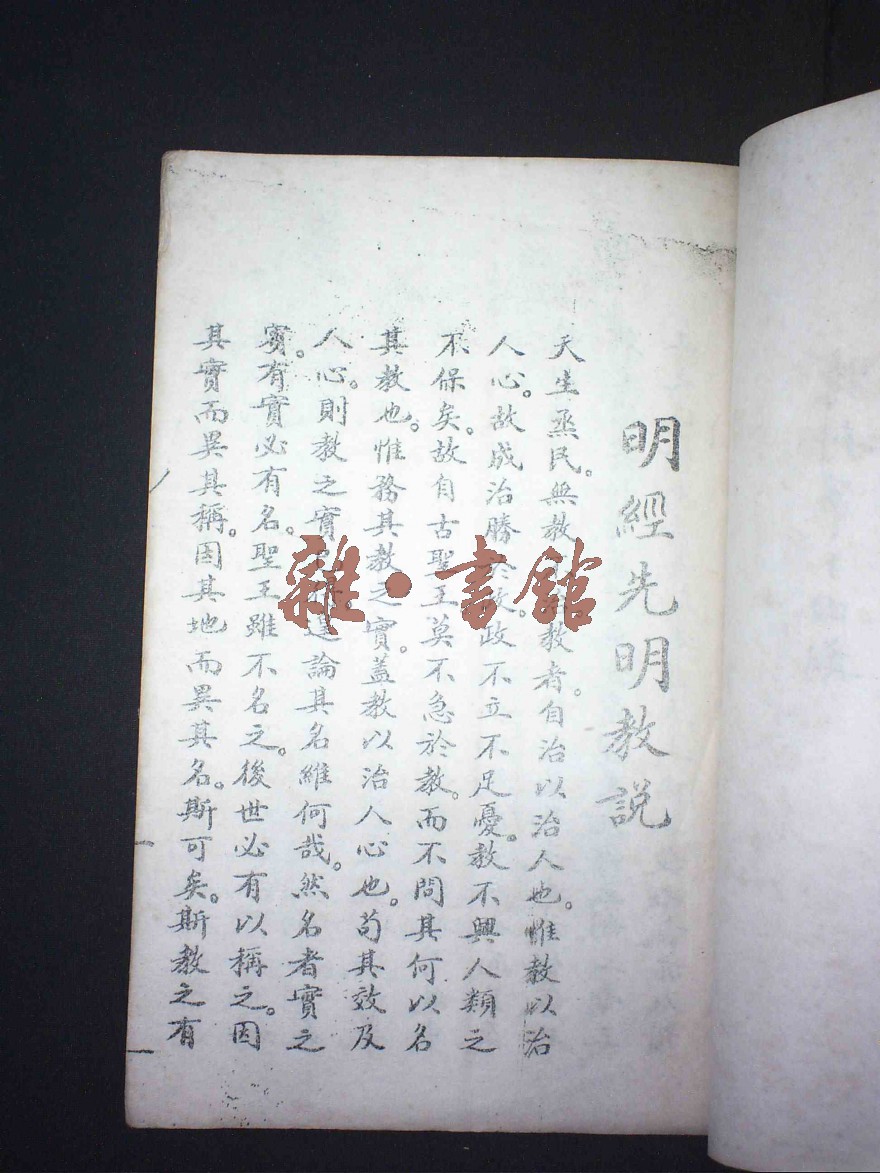 明經先明教說
天生烝民。無教教者。自治以治人也。惟教以治
人心。故成治勝政不立不足憂。教不興人類之
不保矣。故自古聖王莫不急於教。而不問其何以名
其教也。惟務其教之實。蓋教以治人心也。苟其效及
人心。則教之實論其名維何哉。然名者實之
賓。有實必有名。聖王雖不名之。後世必有以稱之。因
其實而異其稱。因其地而異其名。斯可矣。斯教之有
雜·書館